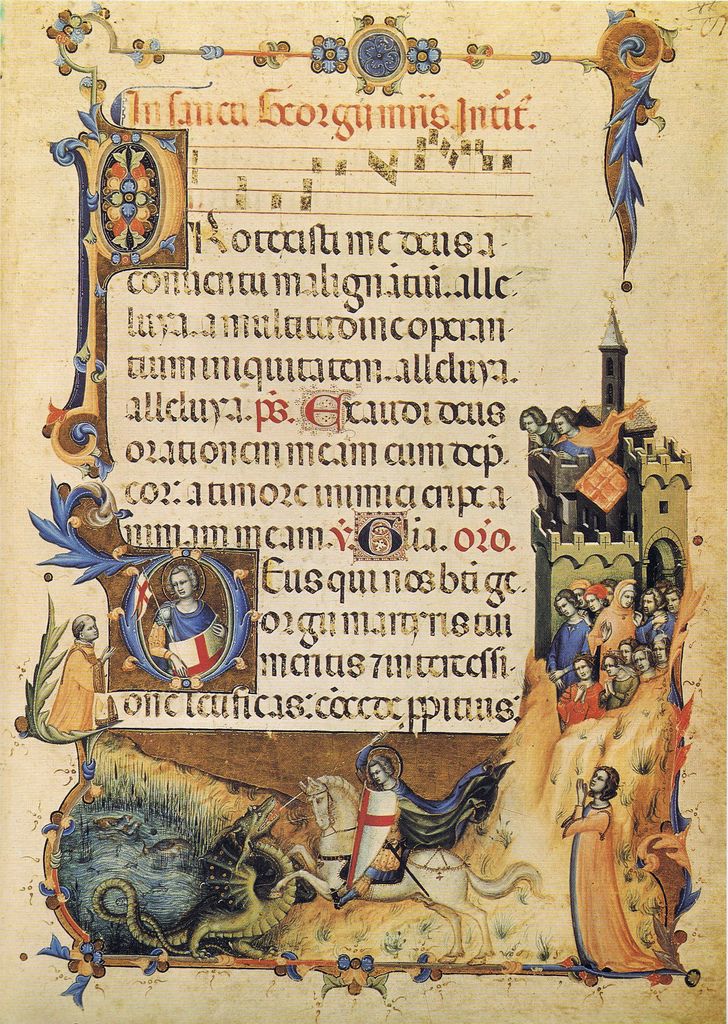 In sancti Georgii mr̄is. Introit̄.
Protexisti me deus a
conventu malignātiū. alle
luya. a multitudine operan
tium iniquitatem. alleluya.
alleluya. p̄s. Exaudi deus
orationem meam cum dep̄
cor: a timore inimici eripe a
nimam meam. v̄ Glīa. orō.
Deus qui nos bt̄i ge
orgii martyris tui
meritis ⁊ intercessi
one letificas: cōcede ppitius;